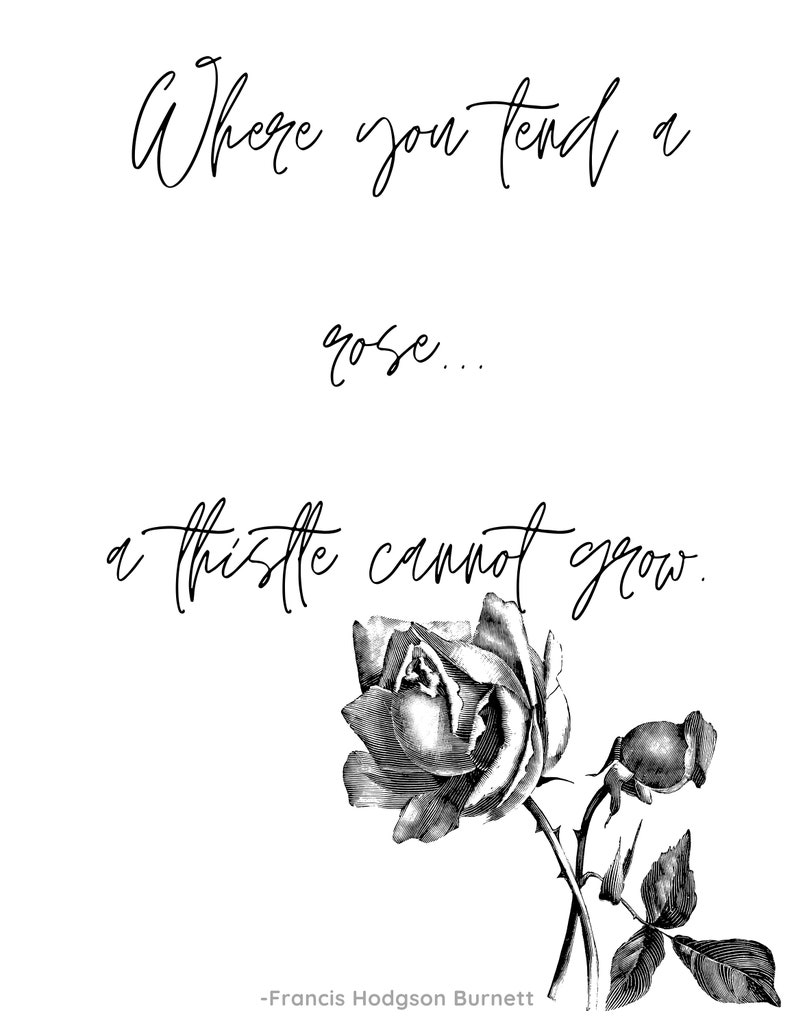 Where you tend a
rose...
a thistle cannot grow.
-Francis Hodgson Burnett